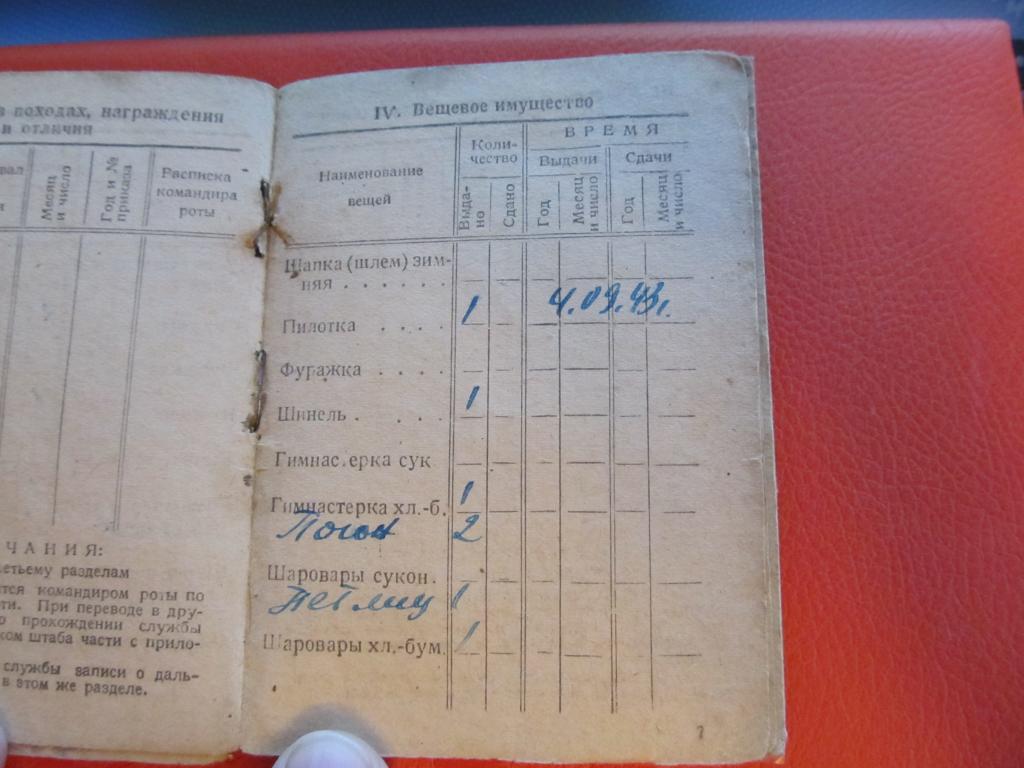 в походах, награждения
и отличия
вал
и
Месяц
и число
Год и №
приказа
Расписка
командира
роты
ЧАНИЯ:
етьему разделам
тся командиром роты по
ти. При переводе в дру-
о прохождении службы
ком штаба части с прило-
службы записи о даль-
в этом же разделе.
IV. Вещевое имущество
Наименование
вещей
Коли-
чество
ВРЕМЯ
Выдачи
Сдачи
Выда-
но
Сдано
Год
Месяц
и число
Год
Месяц
и число
Шапка (шлем) зим-
няя . . . . . .
Пилотка . . . . 1 4.09.43г.
Фуражка . . . .
Шинель . . . . 1
Гимнастерка сук
Гимнастерка хл.-б. 1
Погон 2
Шаровары сукон.
Петлиц 1
Шаровары хл.-бум. 1
7